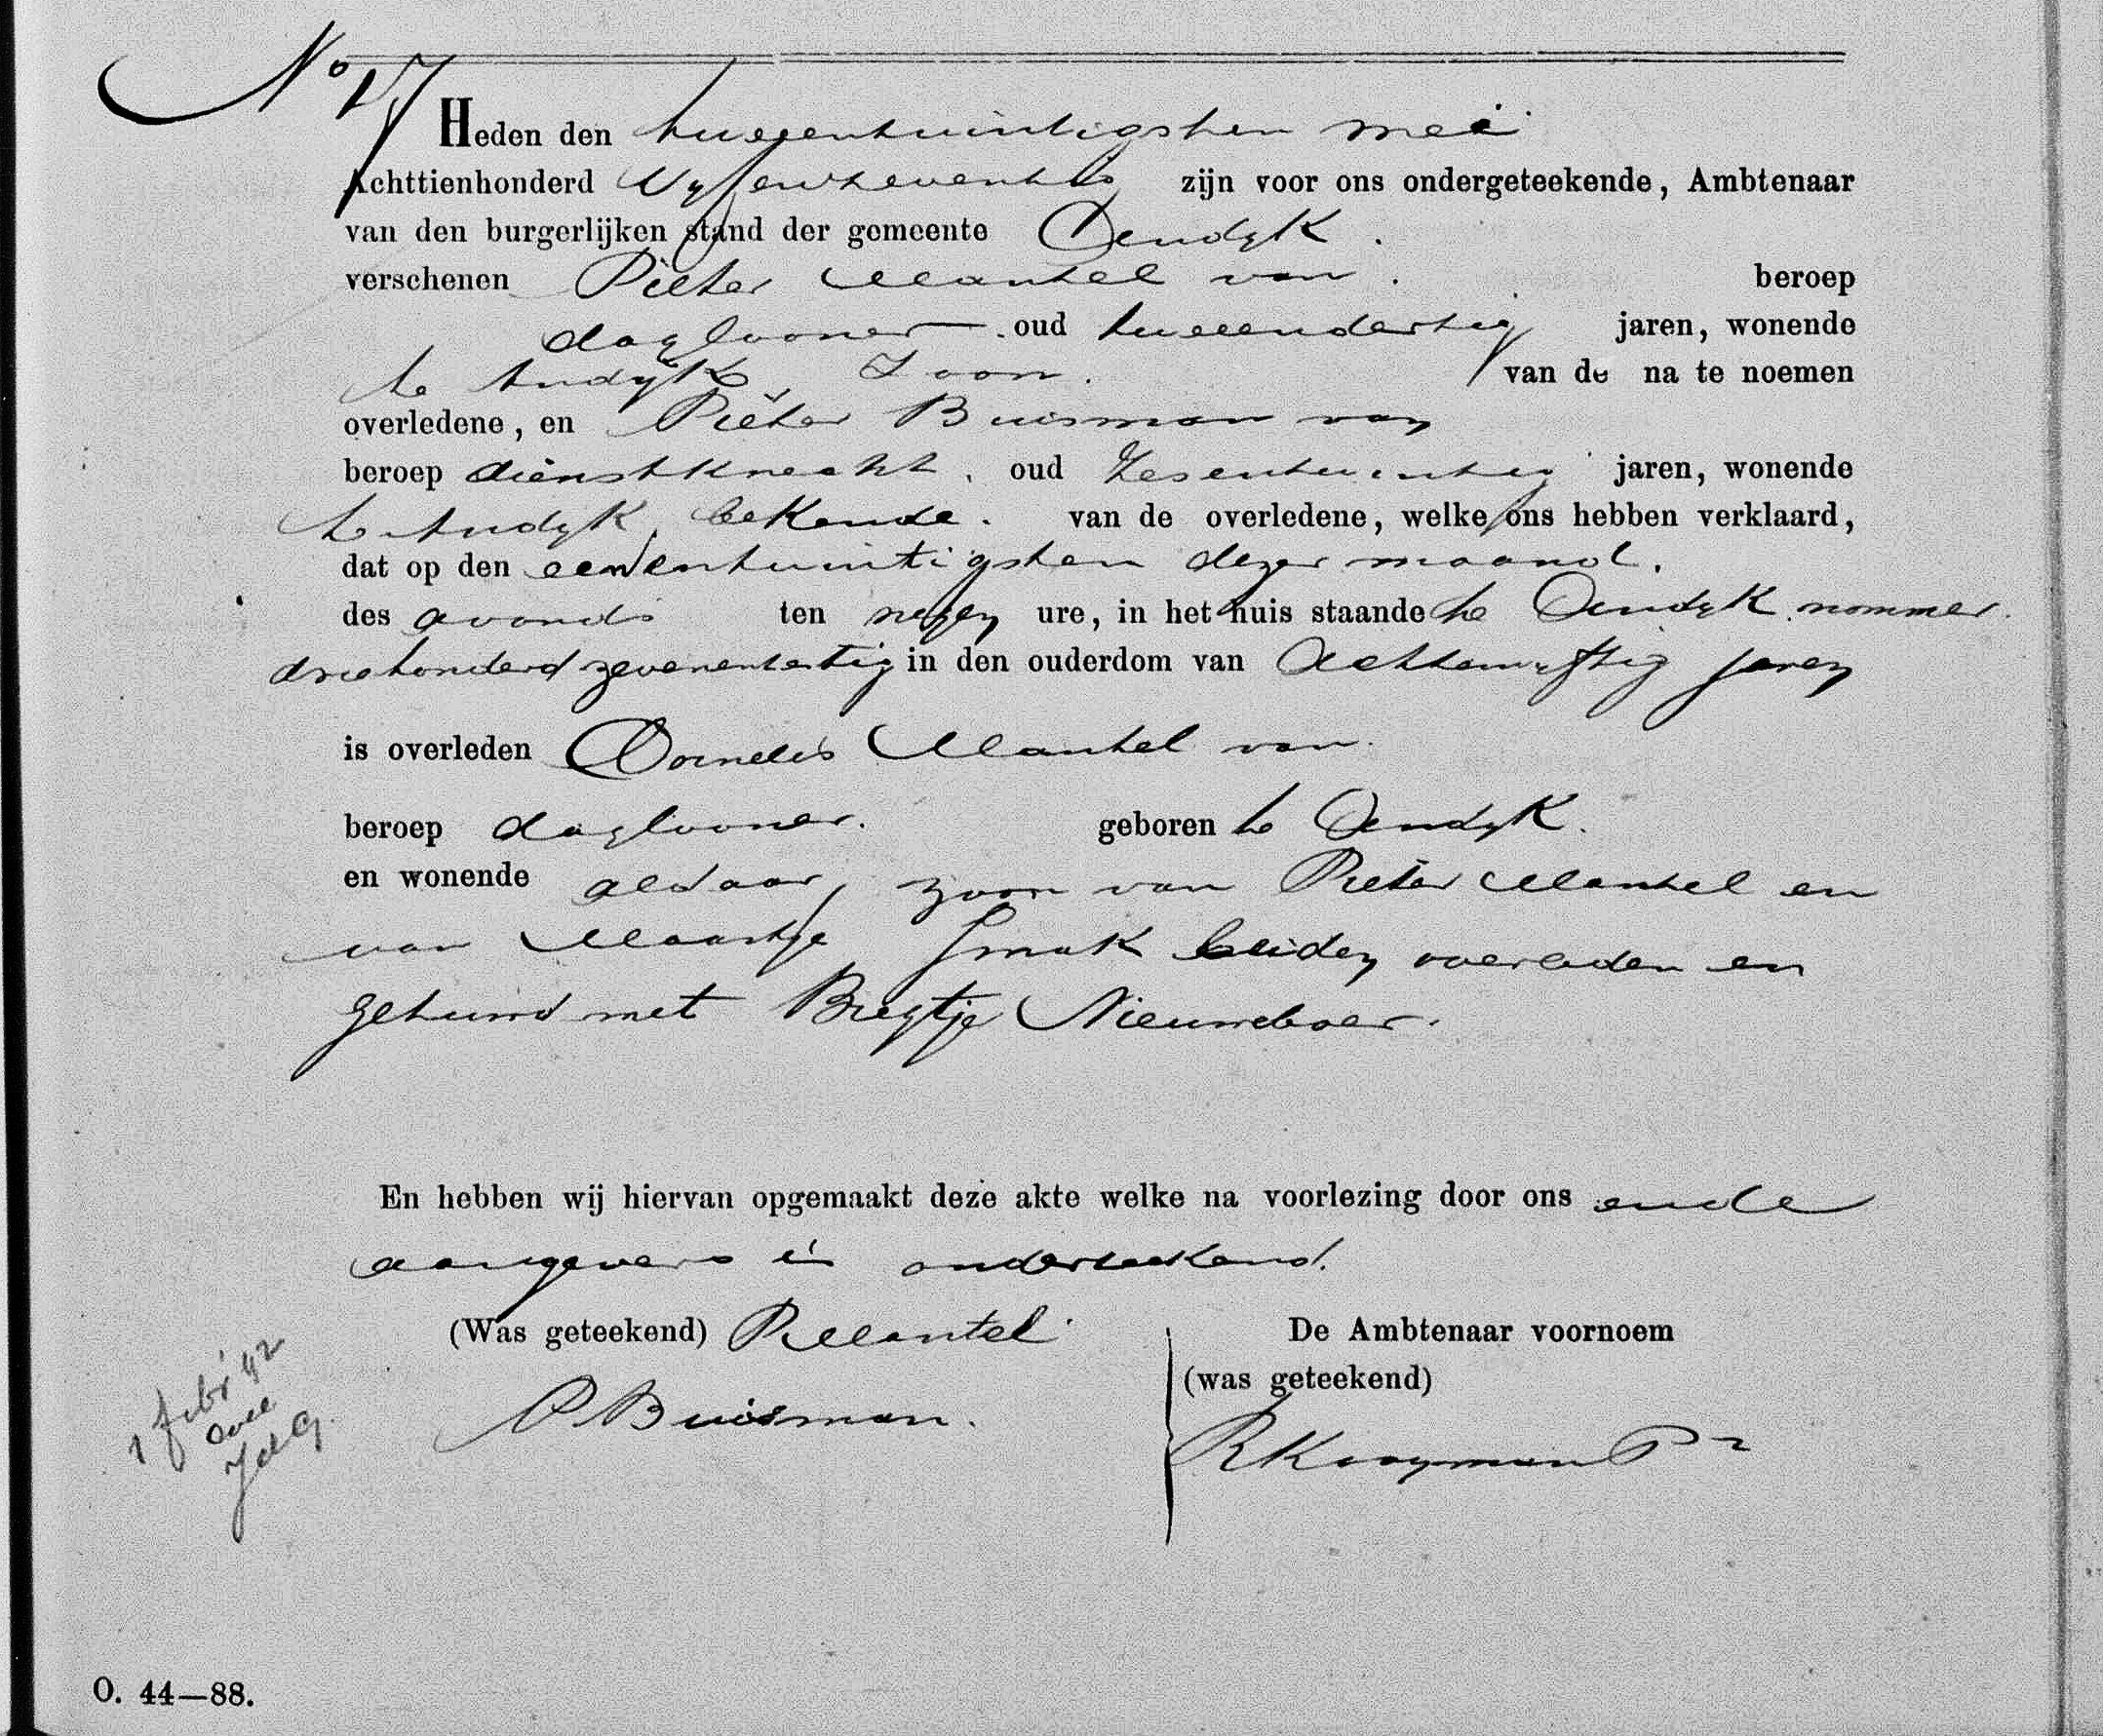 No 17
Heden den tweeentwintigsten mei
Achttienhonderd Vyfenzeventig zijn voor ons ondergeteekende, Ambtenaar
van den burgerlijken stand der gemeente Andyk.
verschenen Pieter Mantel van beroep
daglooner oud tweeendertig jaren, wonende
te Andyk, Zoon. van de na te noemen
overledene, en Pieter Buisman van
beroep dienstknecht, oud Zesentwintig jaren, wonende
te Andyk, bekende. van de overledene, welke ons hebben verklaard,
dat op den eenentwintigsten dezer maand.
des avonds ten negen ure, in het huis staande te Andyk. nommer.
driehonderd zevenentertig in den ouderdom van Achtenvyftig jaren
is overleden Cornelis Mantel van.
beroep daglooner. geboren te Andyk.
en wonende aldaar, zoon van Pieter Mantel en
van Maartje Smak beiden overleden en
gehuwd met Bregtje Nieuweboer.
En hebben wij hiervan opgemaakt deze akte welke na voorlezing door ons en de
aangevers is onderteekend.
(Was geteekend) P Mantel
De Ambtenaar voornoem
(was geteekend)
P Buisman.
R Kooyman Pz
1 febr '42
O. 44—88.